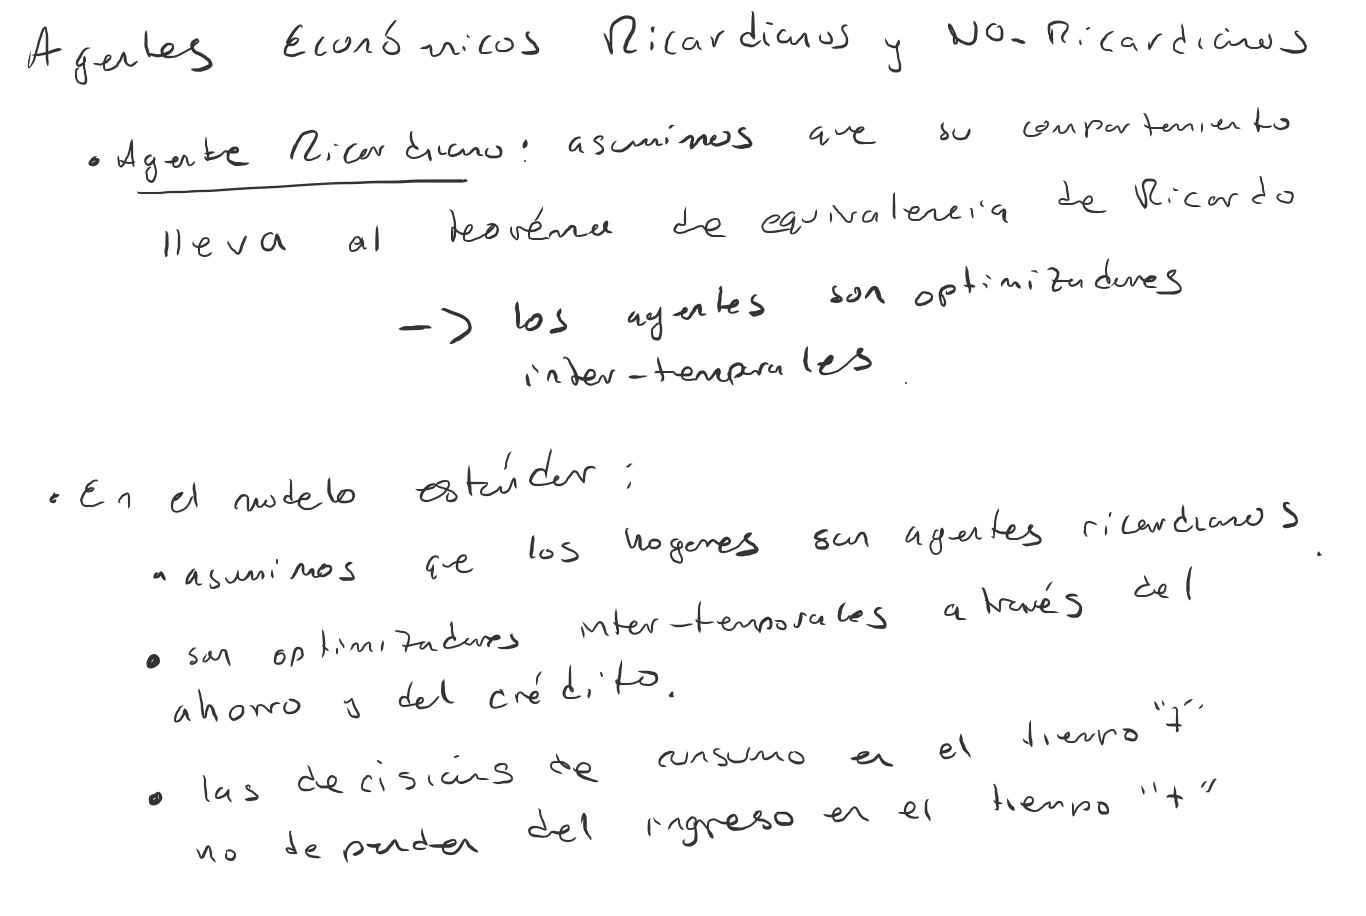 Agentes Económicos Ricardianos y NO-Ricardianos
• Agente Ricardiano: asumimos que su comportamiento
lleva al teoréma de equivalencia de Ricardo
-> los agentes son optimizadores
inter-temporales.
• En el modelo estándar:
• asumimos que los hogares son agentes ricardianos.
• son optimizadores inter-temporales a través del
ahorro y del crédito.
• las decisions de consumo en el tiempo "t"
no dependen del ingreso en el tiempo "t"